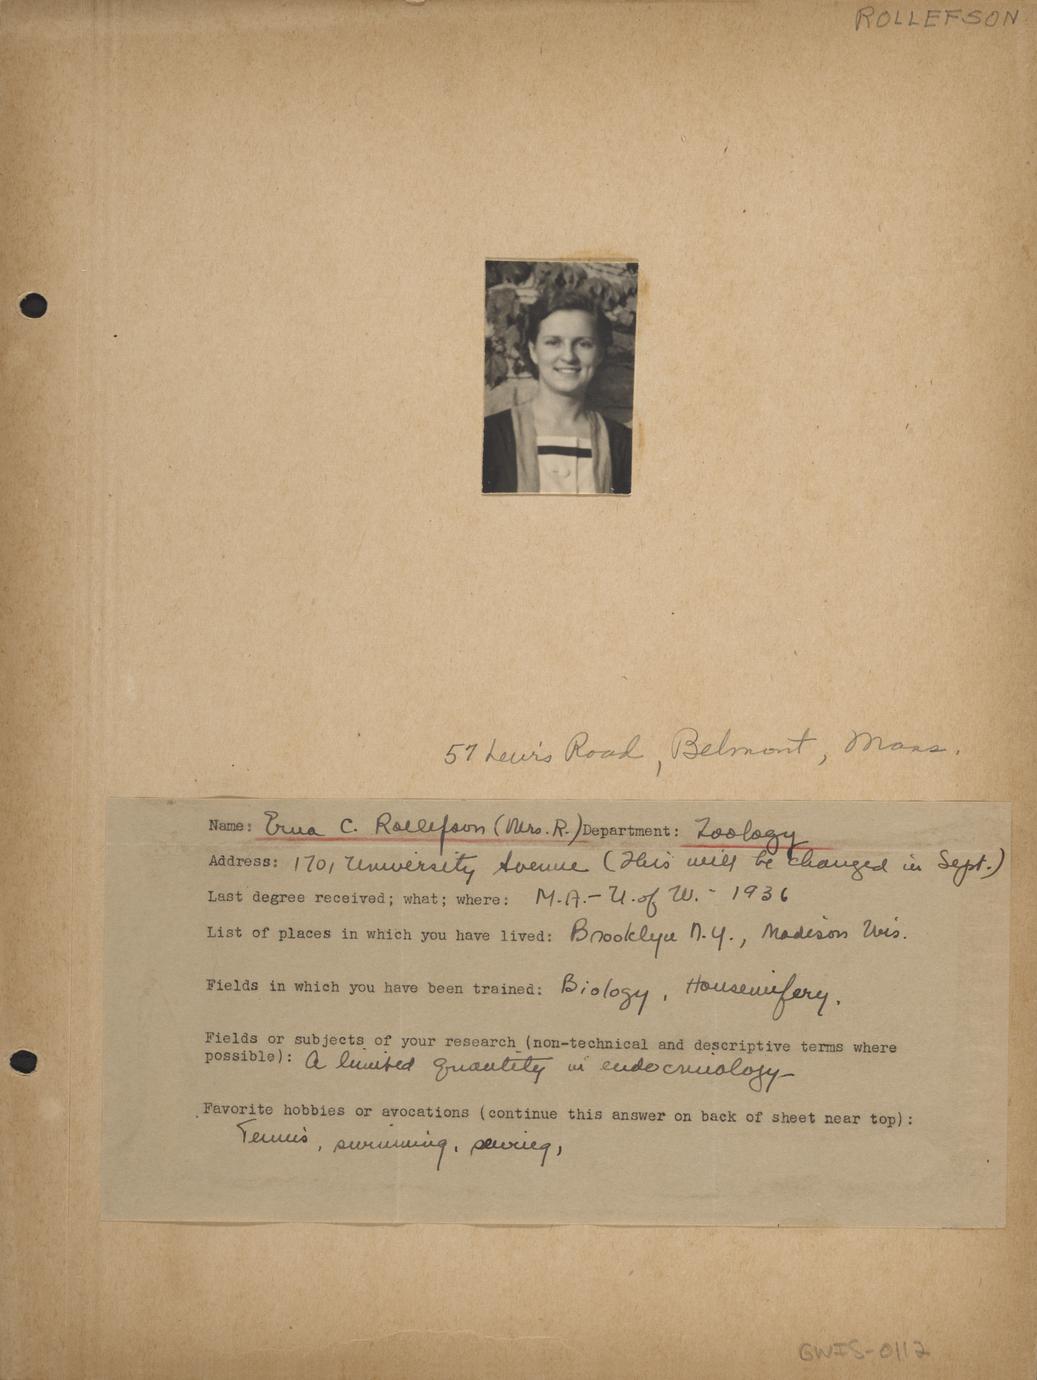 ROLLEFSON
57 Lewis Road, Belmont, Mass.
Name: Erna C. Rollefson (Mrs. R.) Department: Zoology
Address: 1701 University Avenue (This will be changed in Sept.)
Last degree received; what; where: M.A. - U. of W. - 1936
List of places in which you have lived: Brooklyn N.Y., Madison Wis.
Fields in which you have been trained: Biology, Housewifery.
Fields or subjects of your research (non-technical and descriptive terms where
possible): A limited quantity in endocrinology
Favorite hobbies or avocations (continue this answer on back of sheet near top):
Tennis, swimming, sewing,
GWIS-0112